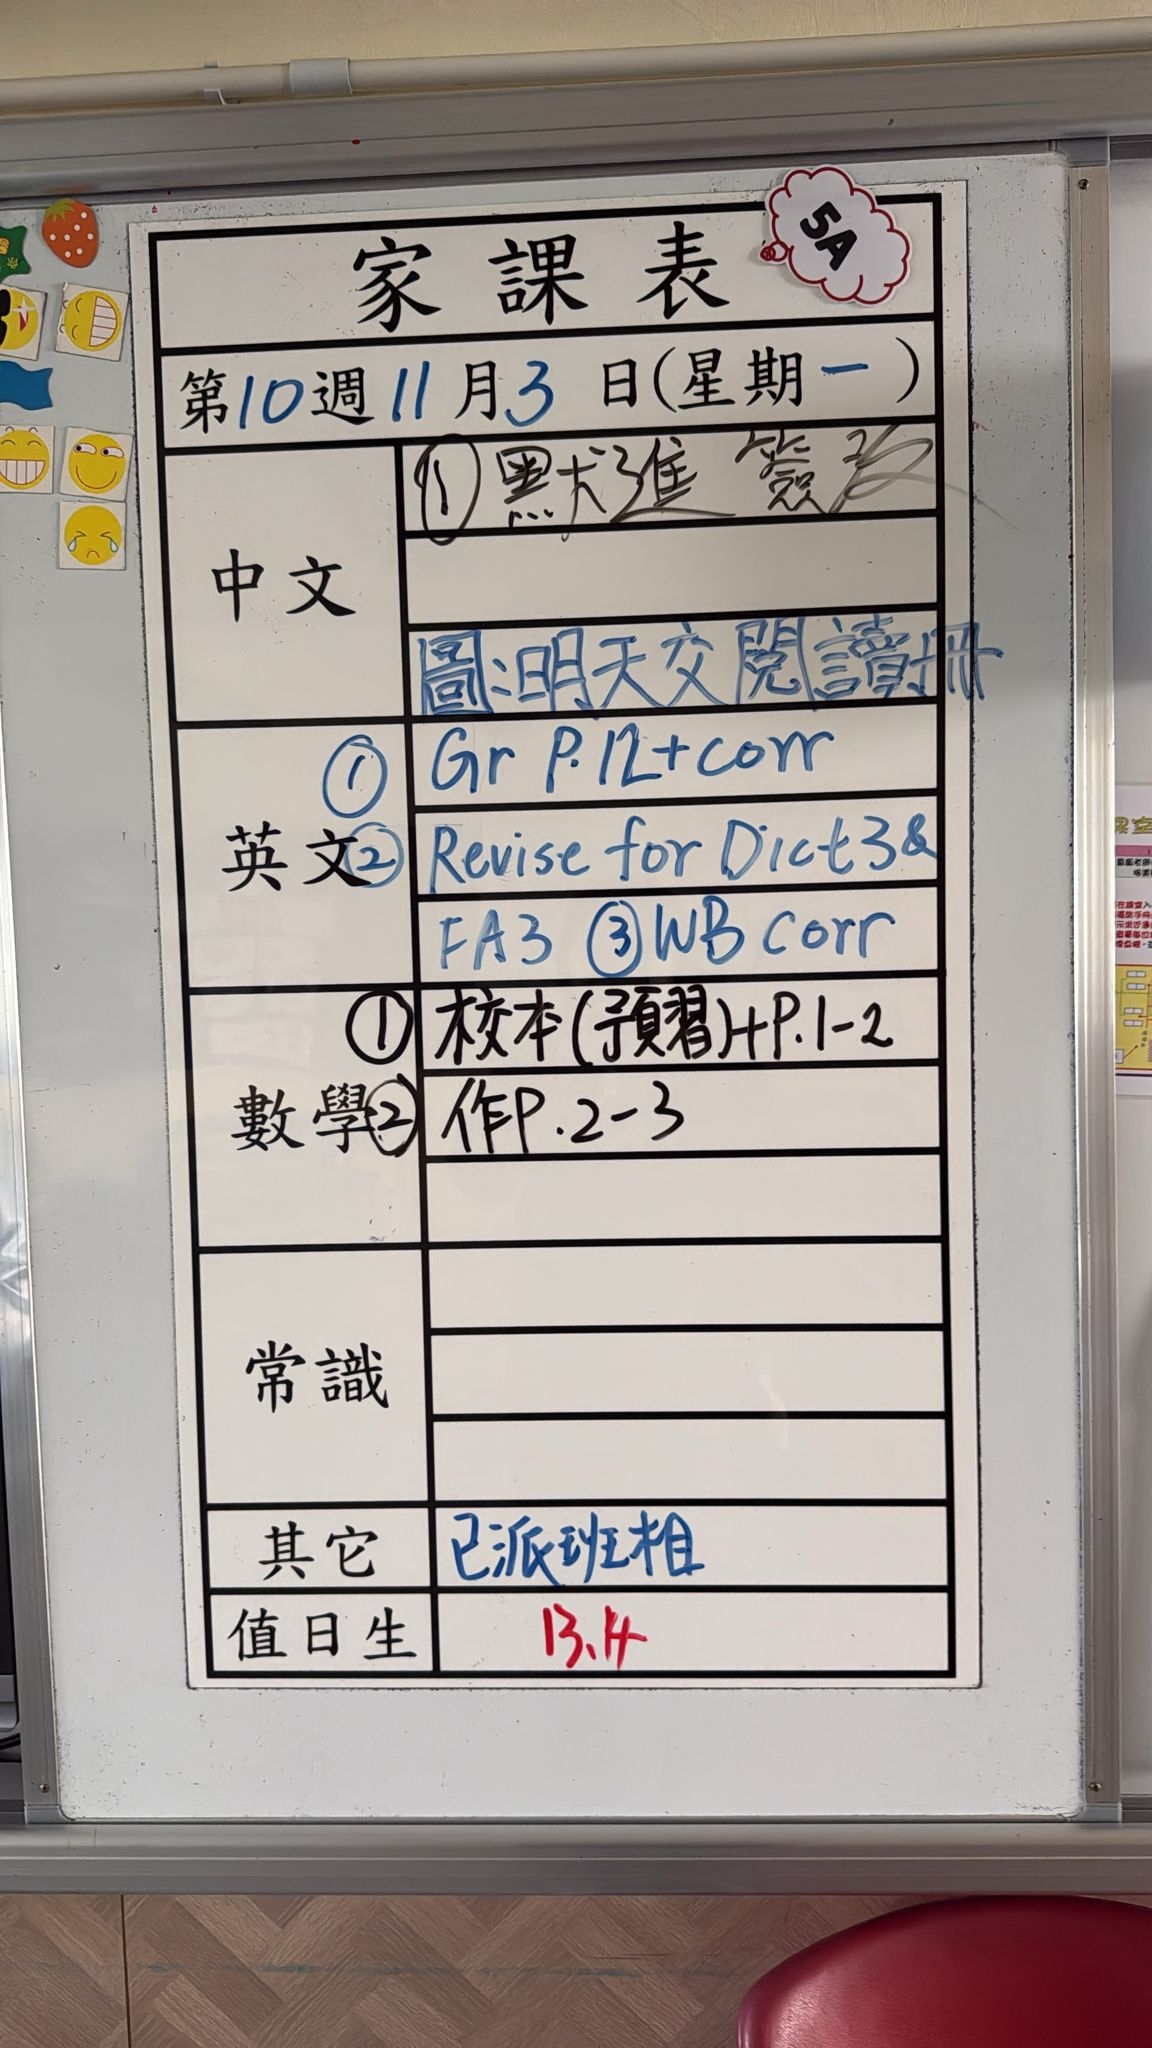 家課表
5A
第10週11月3日(星期一)
中文
① 默進 簽改
圖:明天交閱讀冊
英文
① Gr P.12+corr
② Revise for Dict3&
FA3 ③WB corr
數學
① 校本(預習)+P.1-2
② 作P.2-3
常識
其它
已派班相
值日生
13.14